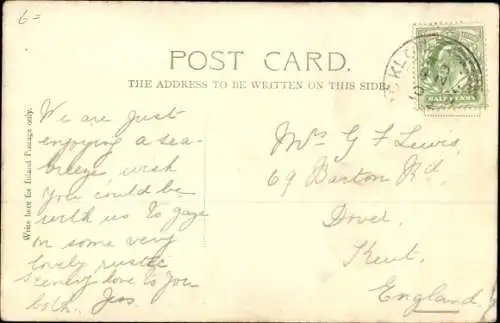 6=
POST CARD.
THE ADDRESS TO BE WRITTEN ON THIS SIDE.
HALF PENNY
Write here for Inland Postage only.
We are just
enjoying a sea-
breeze wish
you could be
with us to gaze
on some very
lovely rustic
scenery love to you
both. Jess
Mrs G F Lewis,
69 Barton Rd.
Dover
Kent.
England